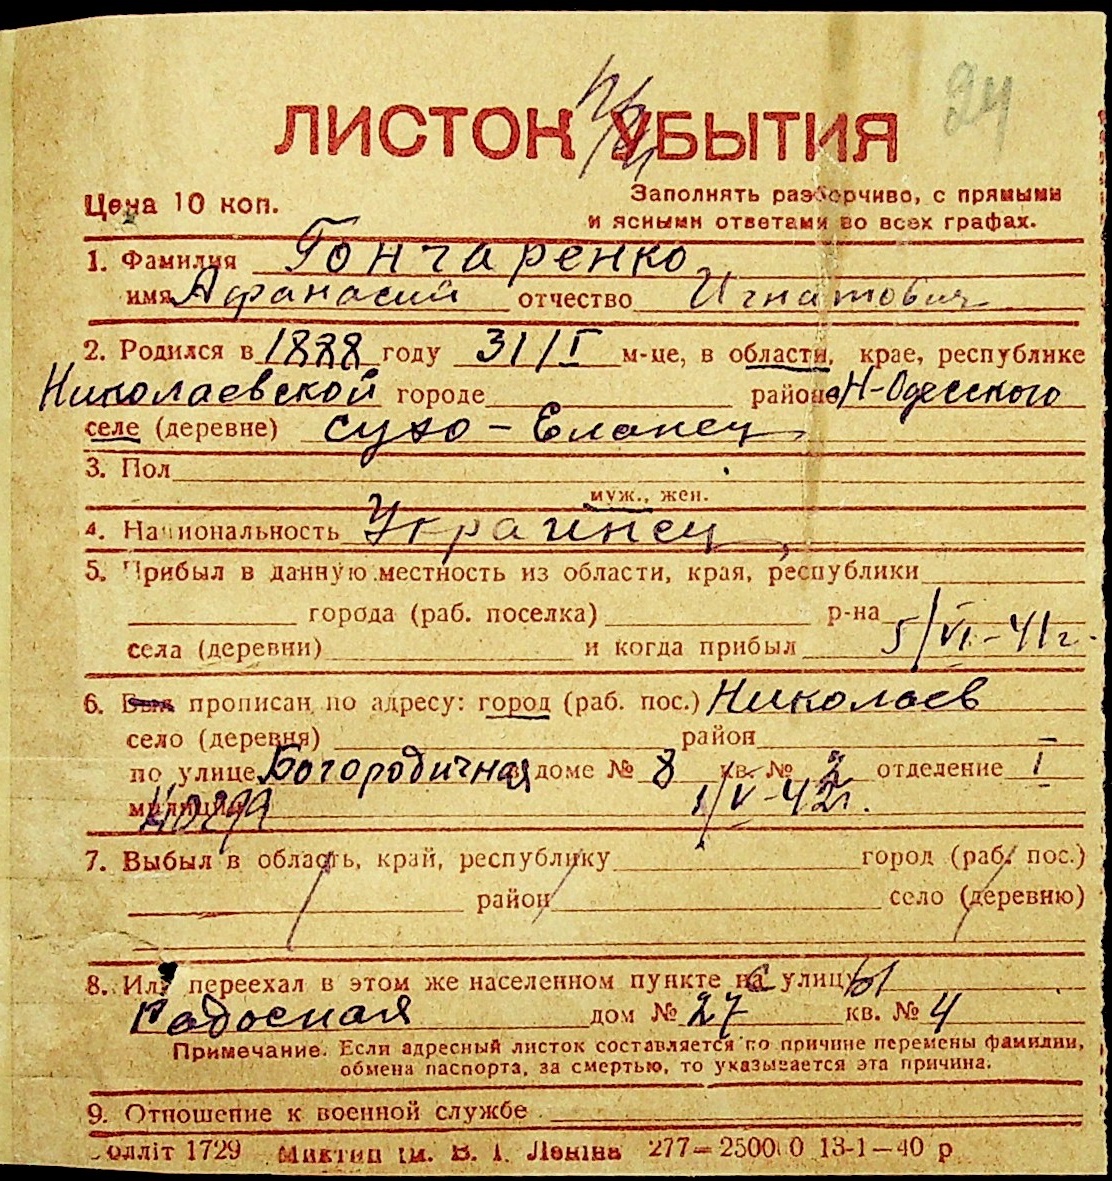 24
ЛИСТОК УБЫТИЯ
Цена 10 коп.
Заполнять разборчиво, с прямыми
и ясными ответами во всех графах.
1. Фамилия Гончаренко
имя Афанасий отчество Игнатович
2. Родился в 1888 году 31/I м-це, в области, крае, республике
Николаевской городе районе Н-Одесского
селе (деревне) сухо-Еланец
3. Пол
муж., жен.
4. Национальность Украинец
5. Прибыл в данную местность из области, края, республики
города (раб. поселка) р-на
села (деревни) и когда прибыл 5/VI-41г.
6. Был прописан по адресу: город (раб. пос.) Николаев
село (деревня) район
по улице Богородичная в доме № 8 кв. № 2 отделение I
милиции 1/V-42г.
7. Выбыл в область, край, республику город (раб. пос.)
район село (деревню)
8. Или переехал в этом же населенном пункте на с улицу ы
Садосная дом № 27 кв. № 4
Примечание. Если адресный листок составляется по причине перемены фамилии,
обмена паспорта, за смертью, то указывается эта причина.
9. Отношение к военной службе
1729 ім. В. І. Леніна 277—25000 13-1—40 р